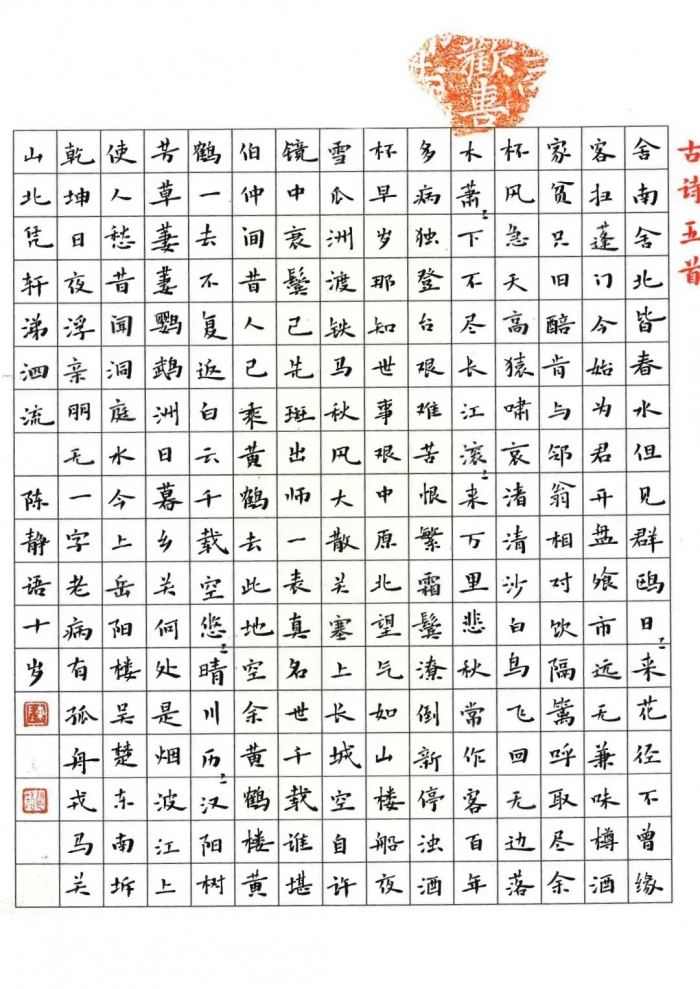 古诗五首
舍南舍北皆春水但见群鸥日〻来花径不曾缘
客扫蓬门今始为君开盘飧市远无兼味樽酒
家贫只旧醅肯与邻翁相对饮隔篱呼取尽余
杯风急天高猿啸哀渚清沙白鸟飞回无边落
木萧〻下不尽长江滚〻来万里悲秋常作客百年
多病独登台艰难苦恨繁霜鬓潦倒新停浊酒
杯早岁那知世事艰中原北望气如山楼船夜
雪瓜洲渡铁马秋风大散关塞上长城空自许
镜中衰鬓已先斑出师一表真名世千载谁堪
伯仲间昔人已乘黄鹤去此地空余黄鹤楼黄
鹤一去不复返白云千载空悠〻晴川历〻汉阳树
芳草萋萋鹦鹉洲日暮乡关何处是烟波江上
使人愁昔闻洞庭水今上岳阳楼吴楚东南坼
乾坤日夜浮亲朋无一字老病有孤舟戎马关
山北凭轩涕泗流 陈静语十岁